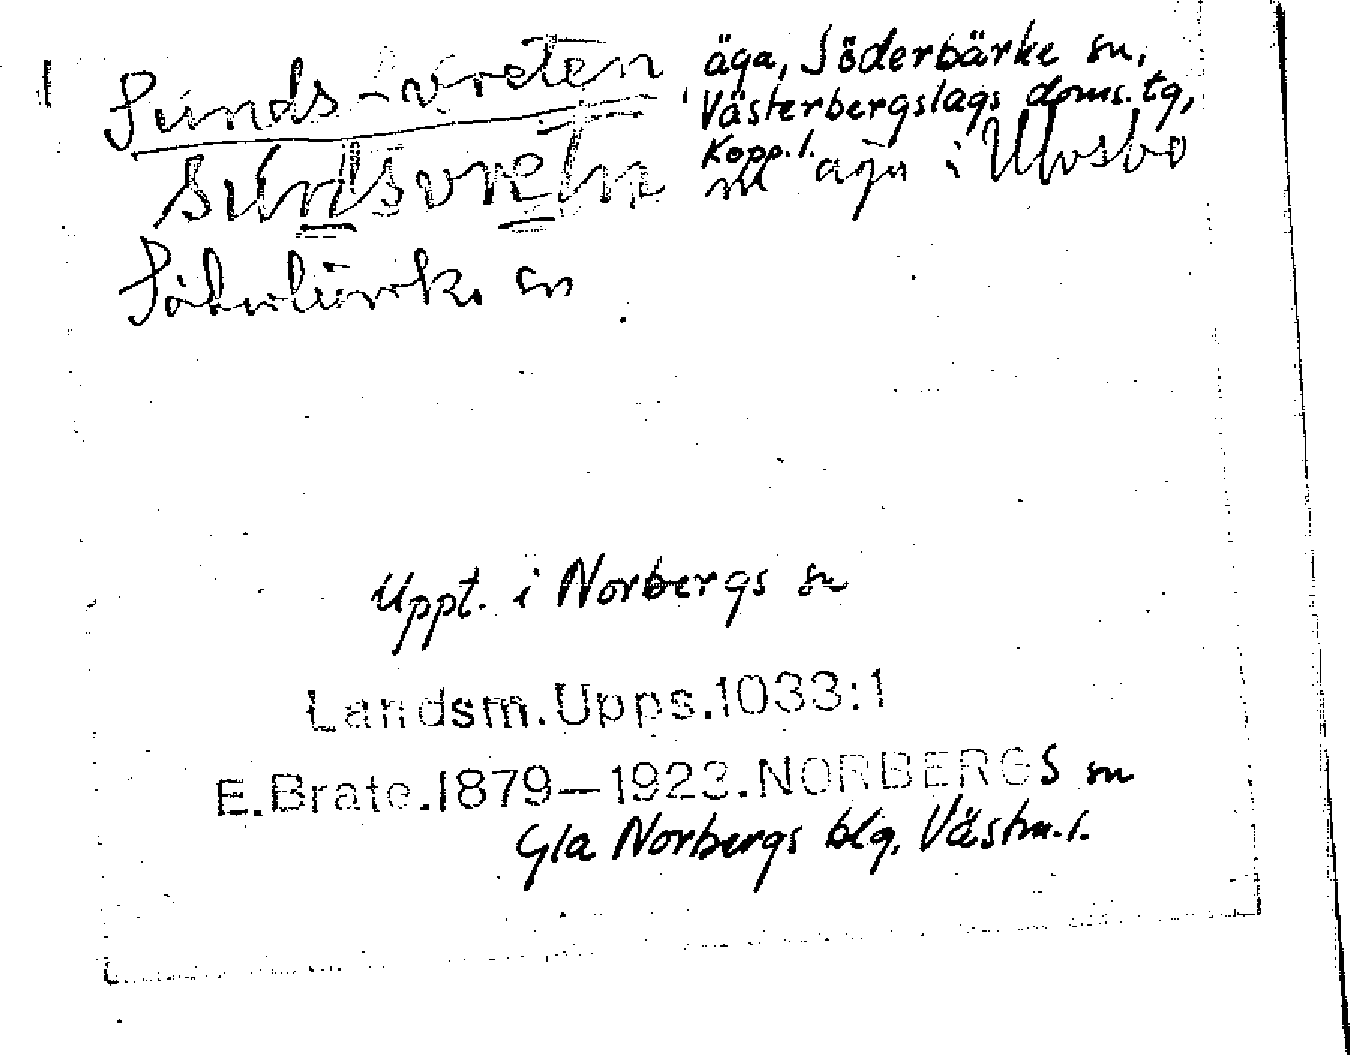 Sunds-vreten äga, Söderbärke sn,
Västerbergslags doms.tg,
Kopp.l.
sundsvretn äga i Ulvsbo
Söderbärke sn
Uppt. i Norbergs sn
Landsm.Upps.1033:1
E.Brate.1879–1923.NORBERGS sn
Gla Norbergs blg, Västm.l.